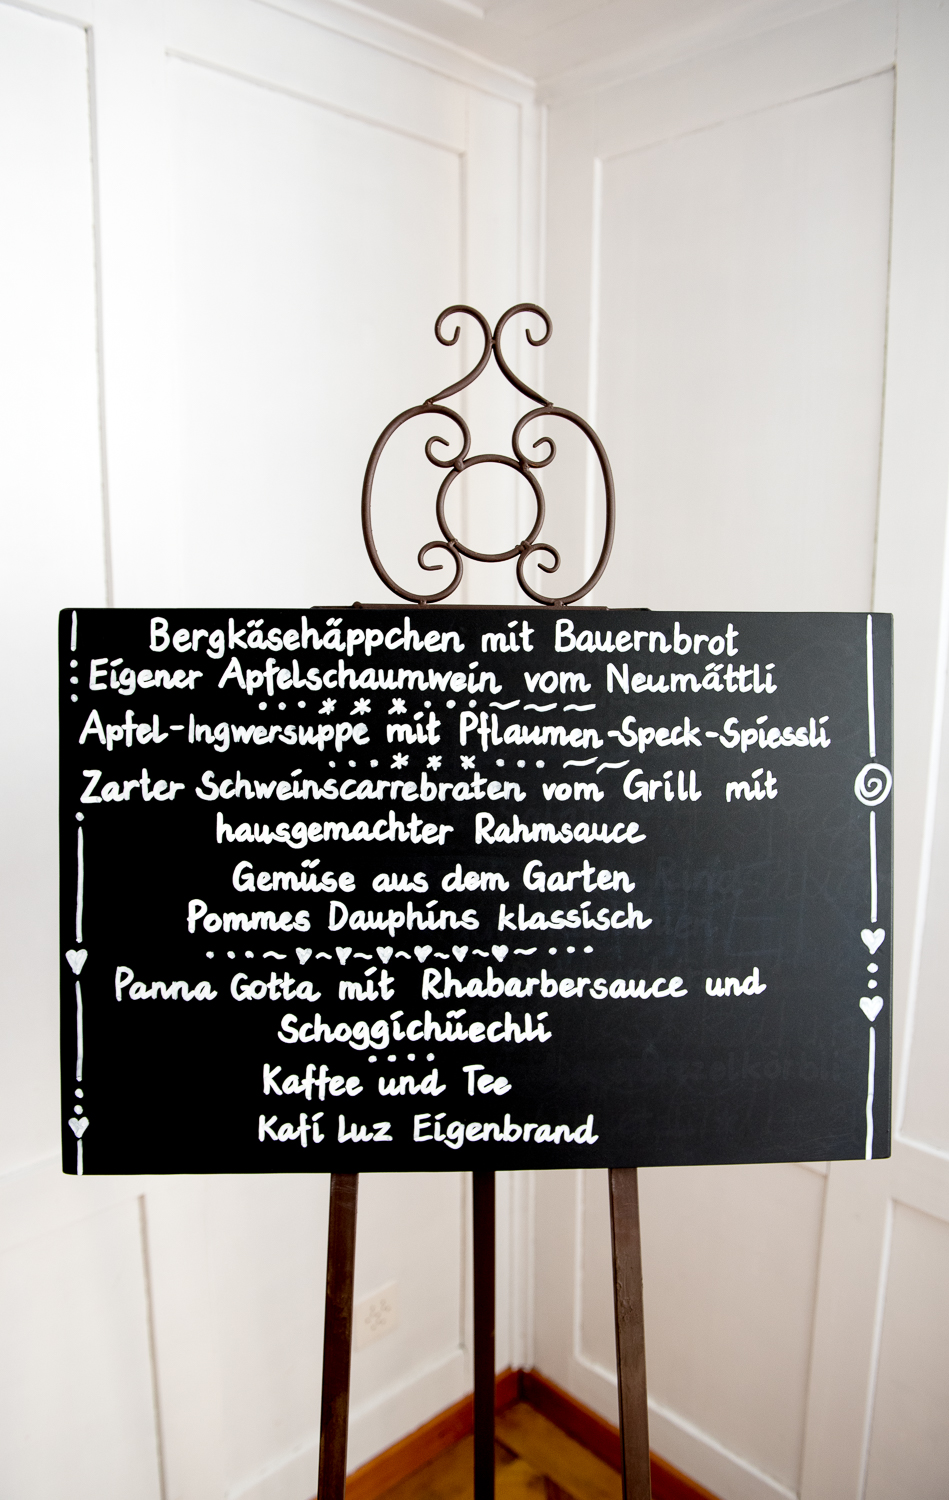 Bergkäsehäppchen mit Bauernbrot
Eigener Apfelschaumwein vom Neumättli
Apfel-Ingwersuppe mit Pflaumen-Speck-Spiessli
Zarter Schweinscarrebraten vom Grill mit
hausgemachter Rahmsauce
Gemüse aus dem Garten
Pommes Dauphins klassisch
Panna Gotta mit Rhabarbersauce und
Schoggichüechli
Kaffee und Tee
Kafi Luz Eigenbrand